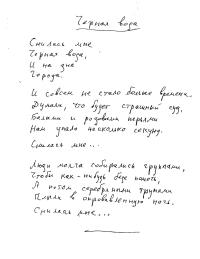 Черная вода
Снилась мне
Черная вода,
И на дне
Города.
И совсем не стало больше времени.
Думали, что будет страшный суд,
Белыми и розовыми перьями
Нам упало несколько секунд.
Снилась мне...
Люди молча собирались группами,
Чтобы как-нибудь беде помочь,
А потом серебряными трупами
Плыли в окровавленную ночь.
Снилась мне...